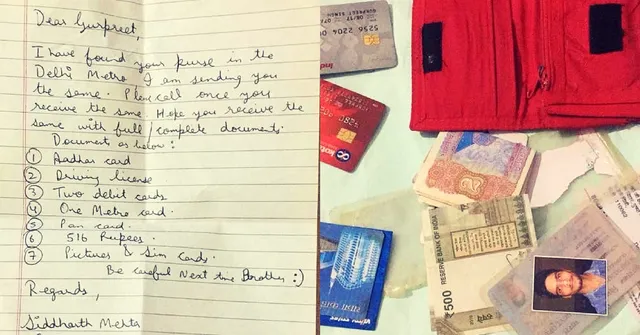 Dear Gurpreet,
I have found your purse in the
Delhi Metro I am sending you
the same. Please call once you
receive the same. Hope you receive the
same with full / complete documents.
Document as below :
① Aadhar card
② Driving license
③ Two debit cards
④ One Metro card.
⑤ Pan card.
⑥ 516 Rupees.
⑦ Pictures & Sim cards.
Be careful Next time Brother :)
Regards,
Siddharth Mehta
GURPREET SINGH
kot
RESERVE BANK OF INDIA
₹500